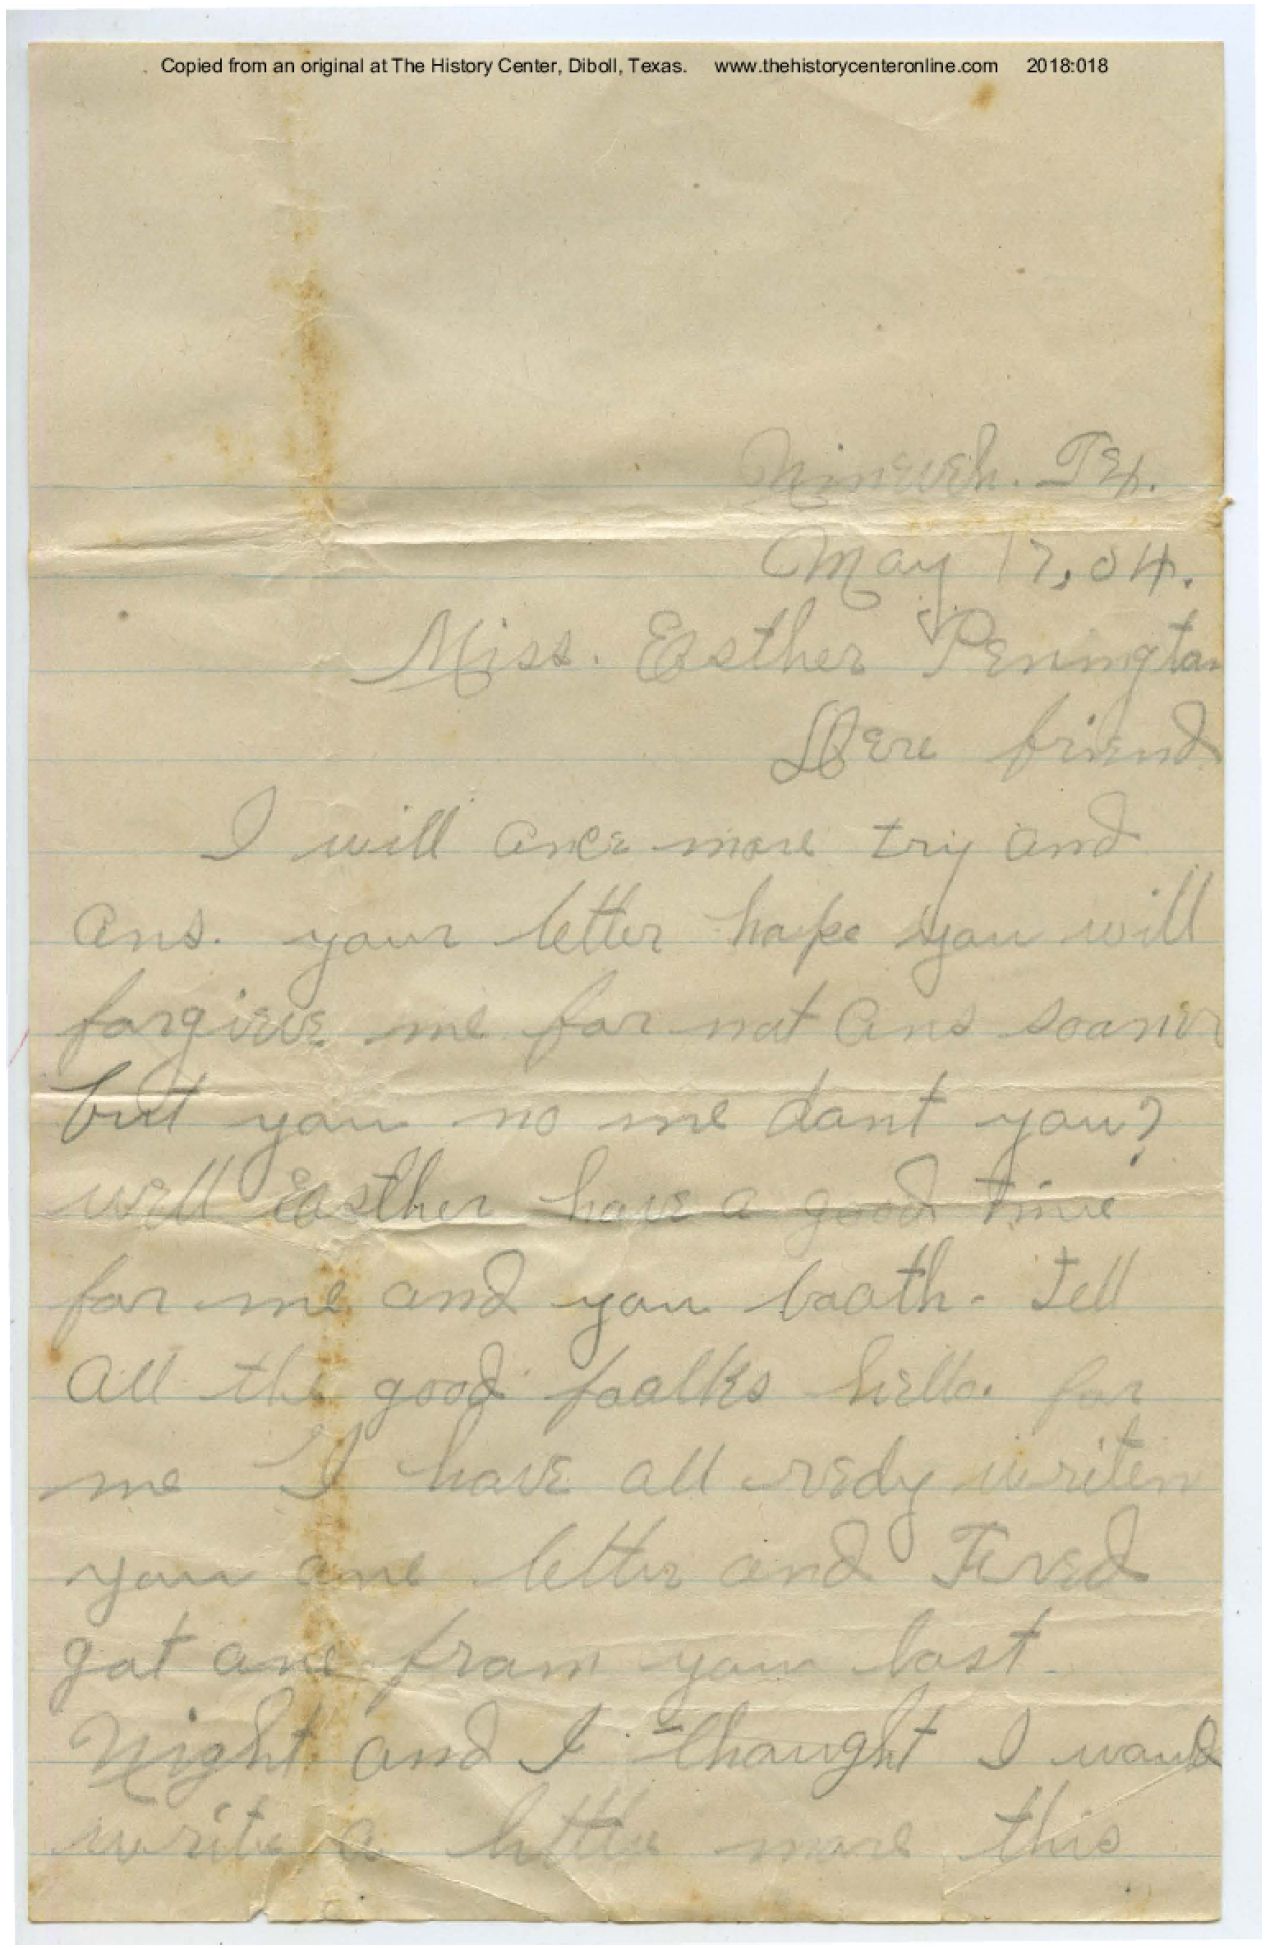 Copied from an original at The History Center, Diboll, Texas. www.thehistorycenteronline.com 2018:018
Nineveh. Tex.
May 17, 04.
Miss. Easther Penington
Dere friend
I will once more try and
ans. your letter hope you will
forgieve me for not ans sooner
but you no me dont you?
well Easther have a good time
for me and you booth. tell
all the good foalks hello. for
me I have all redy writen
you one letter and Fred
got one from you last
Night and I thought I would
write a little more this